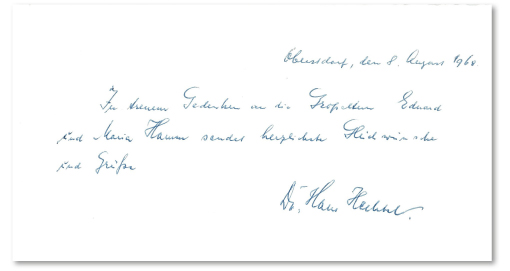 Oberstdorf, den 8. August 1960
In treuem Gedenken an die Großeltern Eduard
und Maria Hamm sendet herzlichste Glückwünsche
und Grüße
Dr. Hans